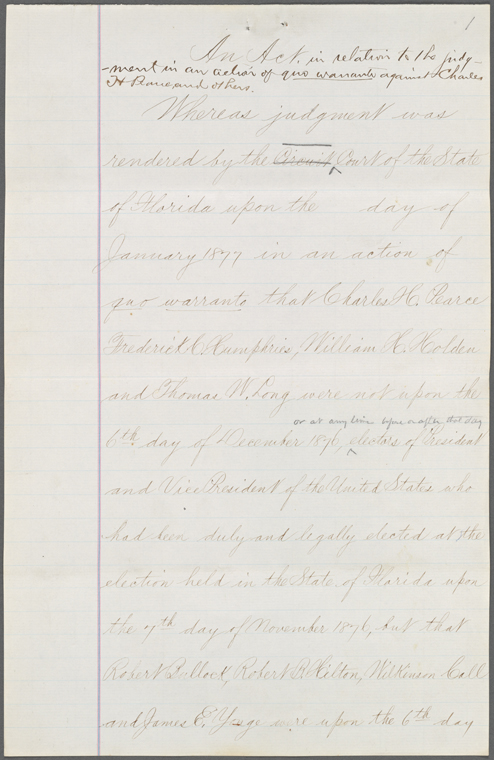 1
An Act. in relation to the judg-
-ment in an action of quo warranto against Charles
H Pearce, and others.
Whereas judgment was
rendered by the Circuit Court of the State
of Florida upon the day of
January 1877 in an action of
quo warranto that Charles H. Pearce
Frederick C. Humphries, William H. Holden
and Thomas W. Long were not upon the
or at any time before or after that day
6th day of December 1876, electors of President
and Vice President of the United States who
had been duly and legally elected at the
election held in the State of Florida upon
the 7th day of November 1876, but that
Robert Bullock, Robert B. Hilton, Wilkinson Call
and James E. Yonge were upon the 6th day